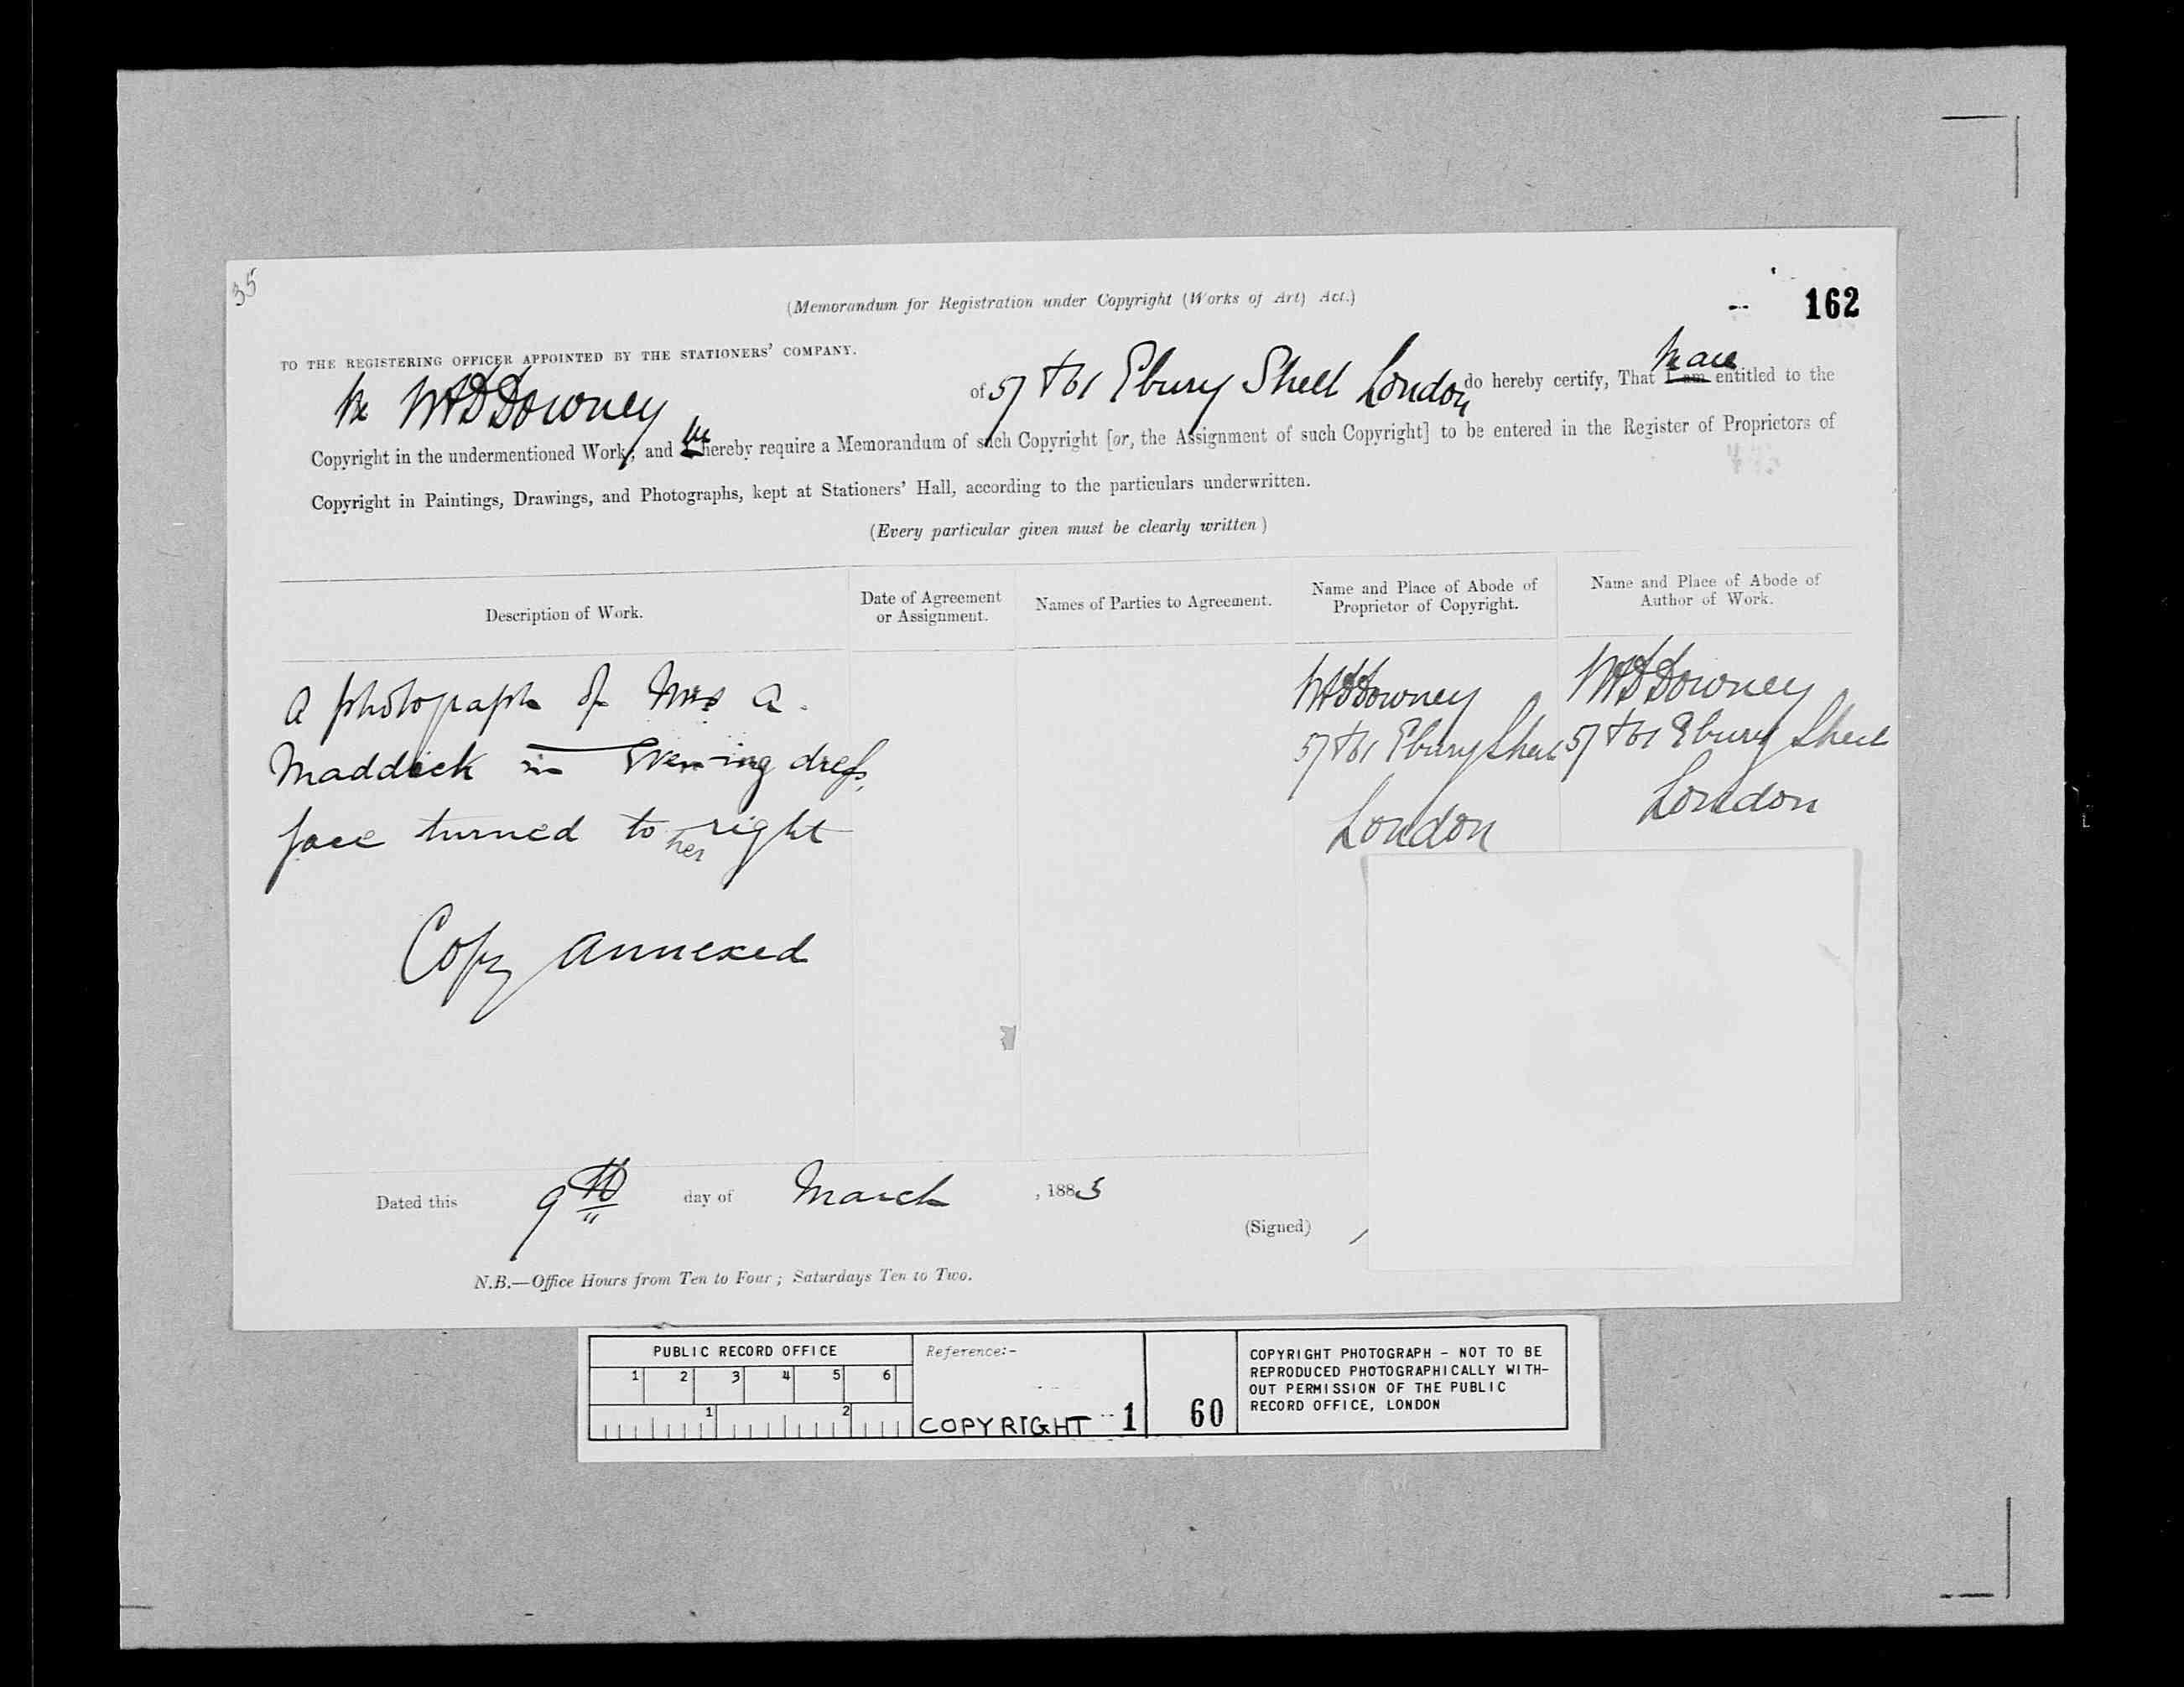 35
(Memorandum for Registration under Copyright (Works of Art) Act.)
162
TO THE REGISTERING OFFICER APPOINTED BY THE STATIONERS' COMPANY.
We W & D Downey of 57 & 61 Ebury Street London do hereby certify, That I am We are entitled to the
Copyright in the undermentioned Work, and I We hereby require a Memorandum of such Copyright [or, the Assignment of such Copyright] to be entered in the Register of Proprietors of
Copyright in Paintings, Drawings, and Photographs, kept at Stationers' Hall, according to the particulars underwritten.
(Every particular given must be clearly written)
Description of Work.
Date of Agreement
or Assignment.
Names of Parties to Agreement.
Name and Place of Abode of
Proprietor of Copyright.
Name and Place of Abode of
Author of Work.
A photograph of Mrs A.
Maddick in Evening dress,
face turned to her right
Copy annexed
W & D Downey
57 & 61 Ebury Street
London
W & D Downey
57 & 61 Ebury Street
London
Dated this 9th day of March, 1883
(Signed)
N.B.—Office Hours from Ten to Four; Saturdays Ten to Two.
PUBLIC RECORD OFFICE
1 2 3 4 5 6
1 2
Reference:-
COPYRIGHT 1
60
COPYRIGHT PHOTOGRAPH - NOT TO BE
REPRODUCED PHOTOGRAPHICALLY WITH-
OUT PERMISSION OF THE PUBLIC
RECORD OFFICE, LONDON